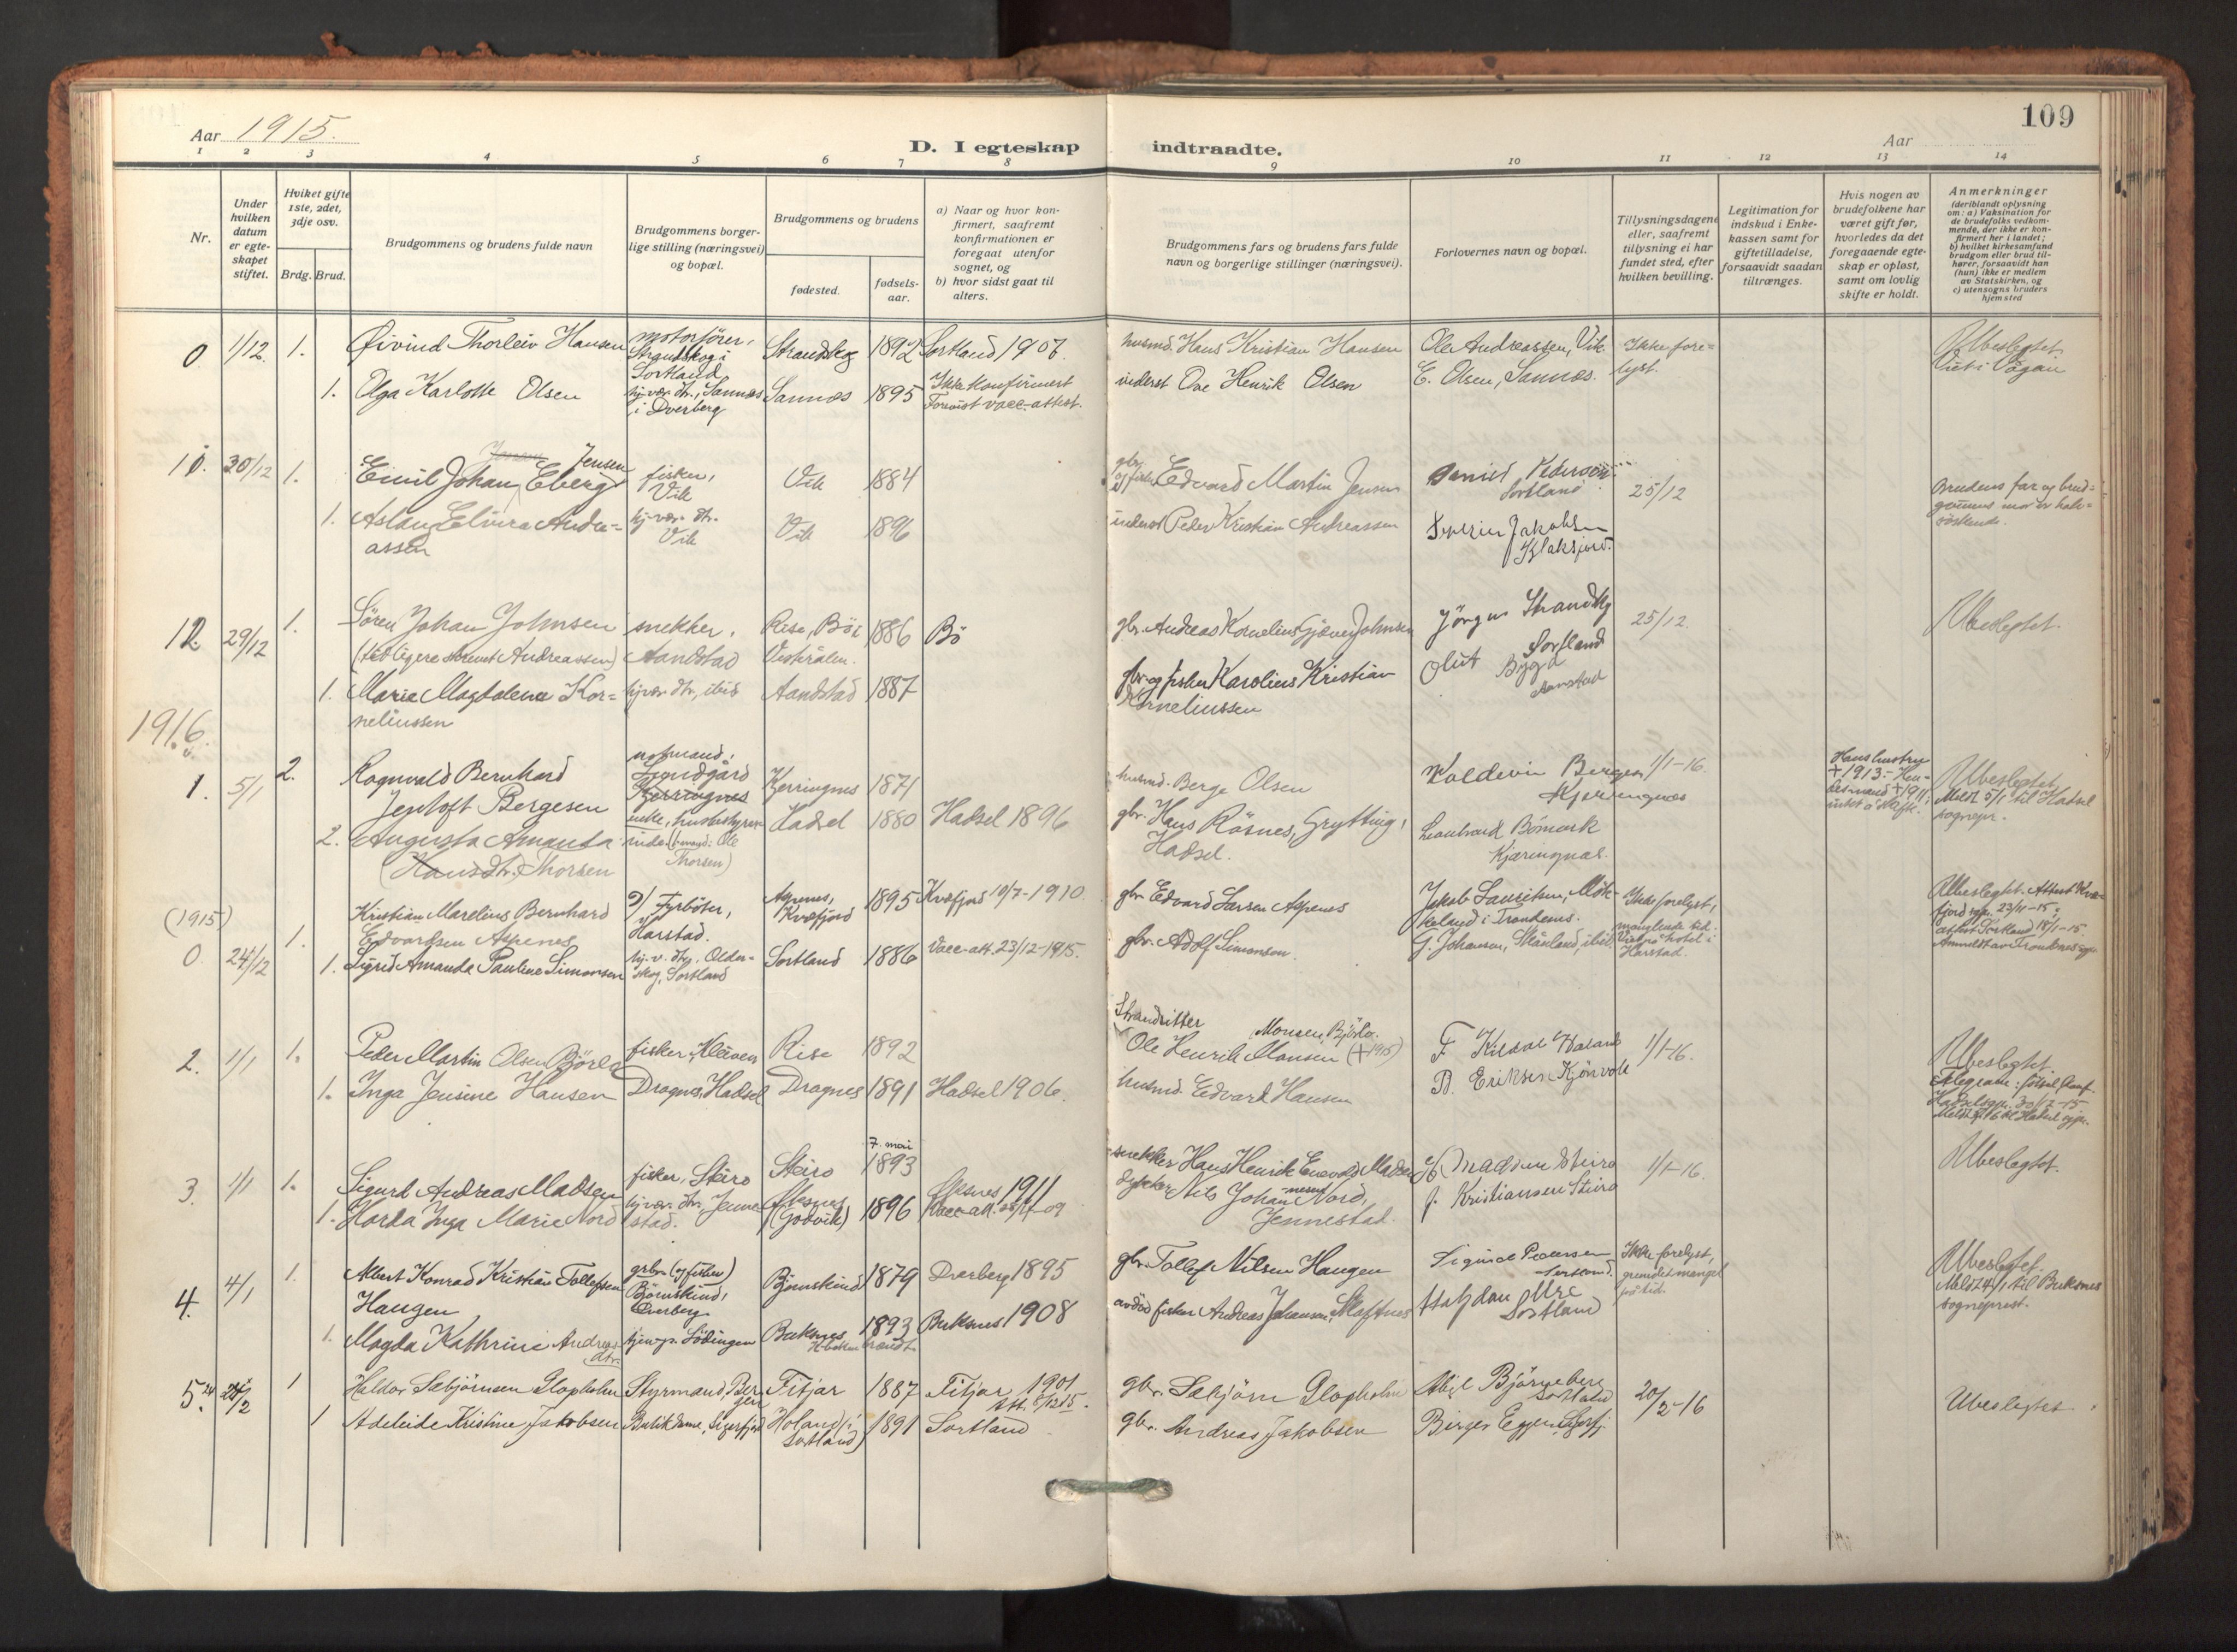 109
Aar 1915.
D. I egteskap indtraadte.
Aar
1 2 3 4 5 6 7 8 9 10 11 12 13 14
Nr.
Under hvilken datum er egteskapet stiftet.
Hviket gifte 1ste, 2det, 3dje osv.
Brdg. Brud.
Brudgommens og brudens fulde navn
Brudgommens borgerlige stilling (næringsvei) og bopæl.
Brudgommens og brudens
fødested.
fødselsaar.
a) Naar og hvor konfirmert, saafremt konfirmationen er foregaat utenfor sognet, og
b) hvor sidst gaat til alters.
Brudgommens fars og brudens fars fulde navn og borgerlige stillinger (næringsvei).
Forlovernes navn og bopæl.
Tillysningsdagene eller, saafremt tillysning ei har fundet sted, efter hvilken bevilling.
Legitimation for indskud i Enkekassen samt for giftetilladelse, forsaavidt saadan tiltrænges.
Hvis nogen av brudefolkene har været gift før, hvorledes da det foregaaende egteskap er opløst, samt om lovlig skifte er holdt.
Anmerkninger (deriblandt oplysning om: a) Vaksination for de brudefolks vedkommende, der ikke er konfirmert her i landet; b) hvilket kirkesamfund brudgom eller brud tilhører, forsaavidt han (hun) ikke er medlem av Statskirken, og c) utensogns bruders hjemsted
0 1/12. 1. Øivind Thorleiv Hansen motorfører, Strandskog i Sortland Strandskog 1892 Sortland 1907. husmd. Hans Kristian Hansen Ole Andreassen, Vik Ikke forelyst. Ubeslegtet. Viet i Vågan
1. Olga Karlotte Olsen hj. vær. dtr., Sannes i Dverberg Sannes 1895 Ikke konfirmert Forevist vacc.-attest. inderst Ove Henrik Olsen E. Olsen, Sannes.
11. 30/12 1. Emil Johan Eberg Jensen fisker, Vik Vik 1884 gbr. og fisker Edvard Martin Jensen Daniel Pedersen Sortland 25/12 Brudens far og brudgommens mor er halvsøskende.
1. Aslaug Elvira Andreassen hj. vær. dtr. Vik Vik 1896 inderst Peder Kristian Andreassen Severin Jakobsen Blaksjord.
12 29/12 1. Sören Johan Johnsen (tidligere skrevet Andreassen) snekker, Aandstad Rise, Bö i Vesterålen. 1886 Bö gbr. Andreas Kornelius Gjæver Johnsen Jörgen Strandskog Sortland 25/12. Ubeslegtet.
1. Marie Magdalene Korneliussen hj. vær. dtr, ibid Aandstad 1887 gbr. og fisker Karolius Kristian Korneliussen Oluf Bygd Aanstad
1916.
1. 5/1 2. Ragnvald Bernhard Jentoft Bergesen notmand, Kjerringnes Kjerringnes 1871 husmd. Berge Olsen Kaldevin Bergesen Kjerringnes 1/1-16. Hans hustru + 1913.- Hendes mand + 1911 intet o. skifte. Ubeslegtet Meldt 5/1 til Hadsel sognepr.
2. Augusta Amanda (Hansdtr.) Thorsen enke, husbestyrerinde (f. mand: Ole Thorsen) Hadsel 1880 Hadsel 1896 gbr. Hans Rösnes, Grytting, Hadsel. Leonhard Bömark Kjæringnæs.
(1915) 0. 24/12 1. Kristian Marelius Bernhard Edvardsen Aspenes Fyrböter, Harstad. Aspenes, Kvæfjord 1895 Kvæfjord 10/7-1910 gbr. Edvard Larsen Aspenes Jakob Lauritsen, Mökkeland i Trondenes. Ikke forelyst, manglende tid. Viet på hotel i Harstad. Ubeslegtet. Attest Kvæfjord spr. 23/11-15,
1. Sigrid Amanda Pauline Simonsen hj. v. dtr. Olderskog, Sortland Sortland 1886 Vacc-att. 23/12-1915. gbr. Adolf Simonsen. G. Johansen, Skånland, ibid.
2. 1/1 1. Peder Martin Olsen Björlo fisker, Kleiven Rise 1892 Strandsitter Ole Henrik Monsen, Björlo. (+ 1915) F. Kildal 1/1-16. Ubeslegtet.
1. Inga Jensine Hansen Dragnes, Hadsel Dragnes 1891 Hadsel 1906. husmd. Edvard Hansen B. Eriksen
3. 1/1 1. Sigurd Andreas Madsen fisker, Steiro Steiro 7. mai 1893 snekker Hans Henrik Enevold Madsen H. Madsen Steiro 1/1-16. Ubeslegtet.
1. Harda Inga Marie Nord hj. vær. dtr. Jennestad. Øksnes (Godvik) 1896 Øksnes 1911 dykker Nils Johan Nord, Jennestad. J. Kristiansen Steiro
4. 4/1 1. Albert Konrad Kristian Tollefsen Haugen grbr. (og fisker) Björnskind, Dverberg Björnskind 1879 Dverberg 1895 gbr. Tollef Nilsen Haugen Sigurd Pedersen Sortland. Ikke forelyst, grundet mangel på tid. Ubeslegtet. Meldt 4/1 til Buksnes sogneprest.
1. Magda Kathrine Andreasdtr. tjen. p. Lödingen Buksnes 1893 Buksnes 1908 avdød fisker Andreas Johansen, Skaftnes Halfdan Sortland
5. 24/2 1 Haldor Sæbjörnsen Glopholm Styrmand, Bergen Fitjar 1887 Fitjar 1901 att. 8/12 15. gbr. Sæbjörn Glopholm Björneberg Sortland 20/2-16 Ubeslegtet.
1 Adeleide Kristine Jakobsen Butikdame, Sigerfjord Holand (i Sortland) 1891 Sortland gbr. Andreas Jakobsen Birger Eggen, Sigerfj.